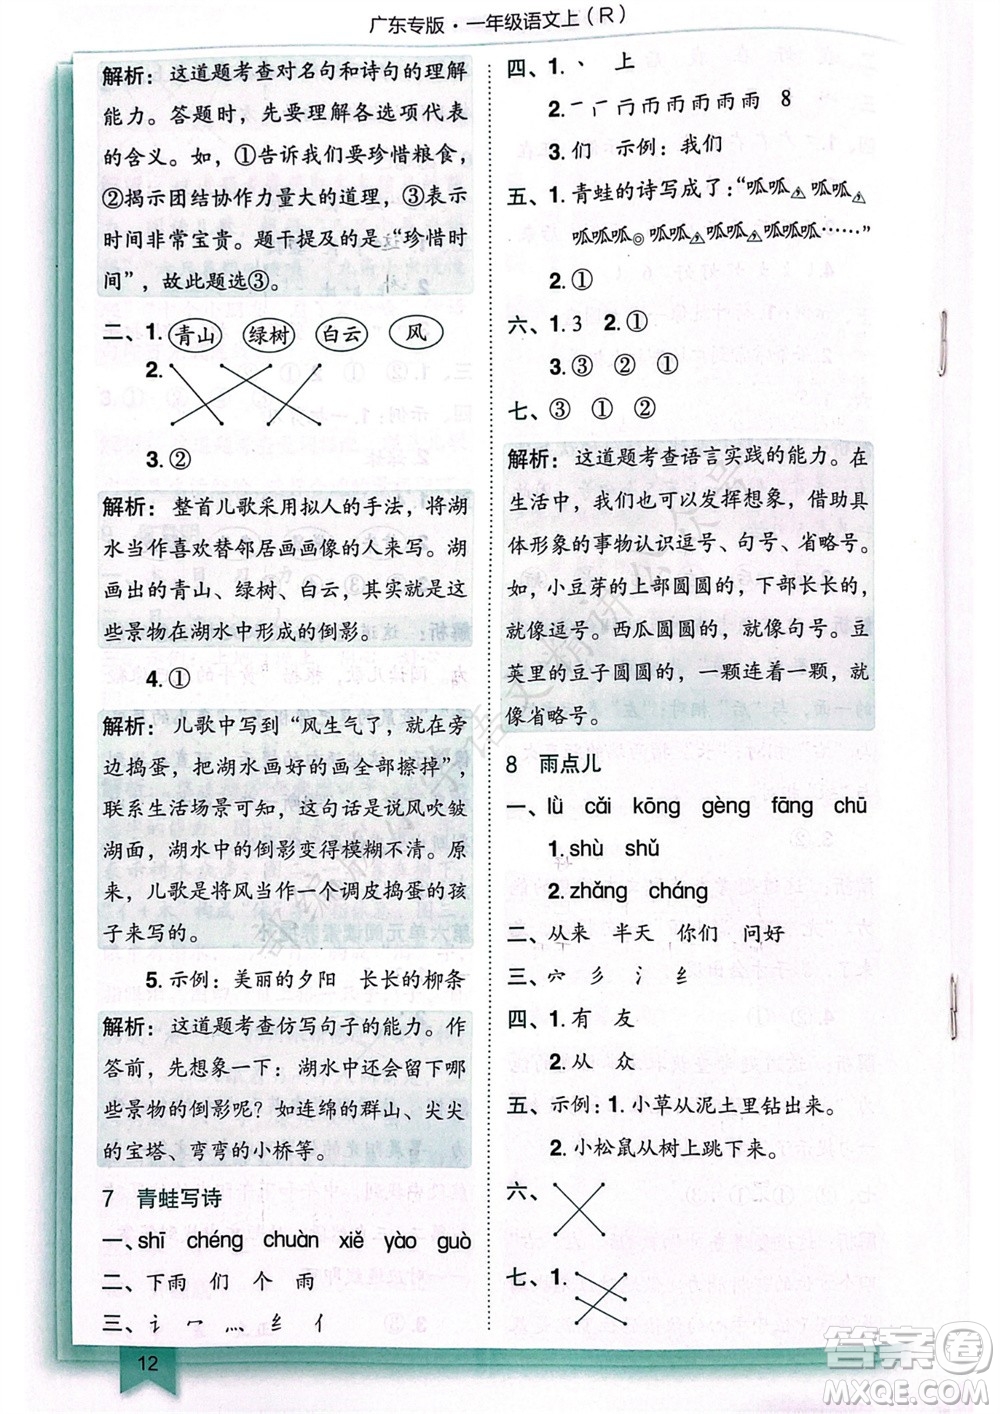 广东专版·一年级语文上(R)
解析：这道题考查对名句和诗句的理解
能力。答题时，先要理解各选项代表
的含义。如，①告诉我们要珍惜粮食，
②揭示团结协作力量大的道理，③表示
时间非常宝贵。题干提及的是“珍惜时
间”，故此题选③。
二、1. 青山 绿树 白云 风
2.
3. ②
解析：整首儿歌采用拟人的手法，将湖
水当作喜欢替邻居画画像的人来写。湖
画出的青山、绿树、白云，其实就是这
些景物在湖水中形成的倒影。
4. ①
解析：儿歌中写到“风生气了，就在旁
边捣蛋，把湖水画好的画全部擦掉”，
联系生活场景可知，这句话是说风吹皱
湖面，湖水中的倒影变得模糊不清。原
来，儿歌是将风当作一个调皮捣蛋的孩
子来写的。
5. 示例：美丽的夕阳 长长的柳条
解析：这道题考查仿写句子的能力。作
答前，先想象一下：湖水中还会留下哪
些景物的倒影呢？如连绵的群山、尖尖
的宝塔、弯弯的小桥等。
7 青蛙写诗
一、shī chéng chuàn xiě yào guò
二、下雨 们 个 雨
三、讠 冖 灬 纟 亻
四、1. 丶 上
2. 一 丆 冂 币 雨 雨 雨 雨 8
3. 们 示例：我们
五、1. 青蛙的诗写成了：“呱呱，呱呱，
呱呱呱。呱呱，呱呱，呱呱呱……”
2. ① ①
六、1. 3 2. ①
3. ③ ② ①
七、③ ① ②
解析：这道题考查语言实践的能力。在
生活中，我们可以发挥想象，借助具
体形象的事物认识逗号、句号、省略号。
例如，小豆芽的上部圆圆的，下部长长的，
就像逗号。西瓜圆圆的，就像句号。豆
荚里的豆子圆圆的，一颗连着一颗，就
像省略号。
8 雨点儿
一、lǜ cǎi kōng gèng fāng chū
1. shù shǔ
2. zhǎng cháng
二、从来 半天 你们 问好
三、宀 彡 氵 纟
四、1. 有 友
2. 从 众
五、示例：1. 小草从泥土里钻出来。
2. 小松鼠从树上跳下来。
六、
七、1.
12
答案圈
MXQE.COM